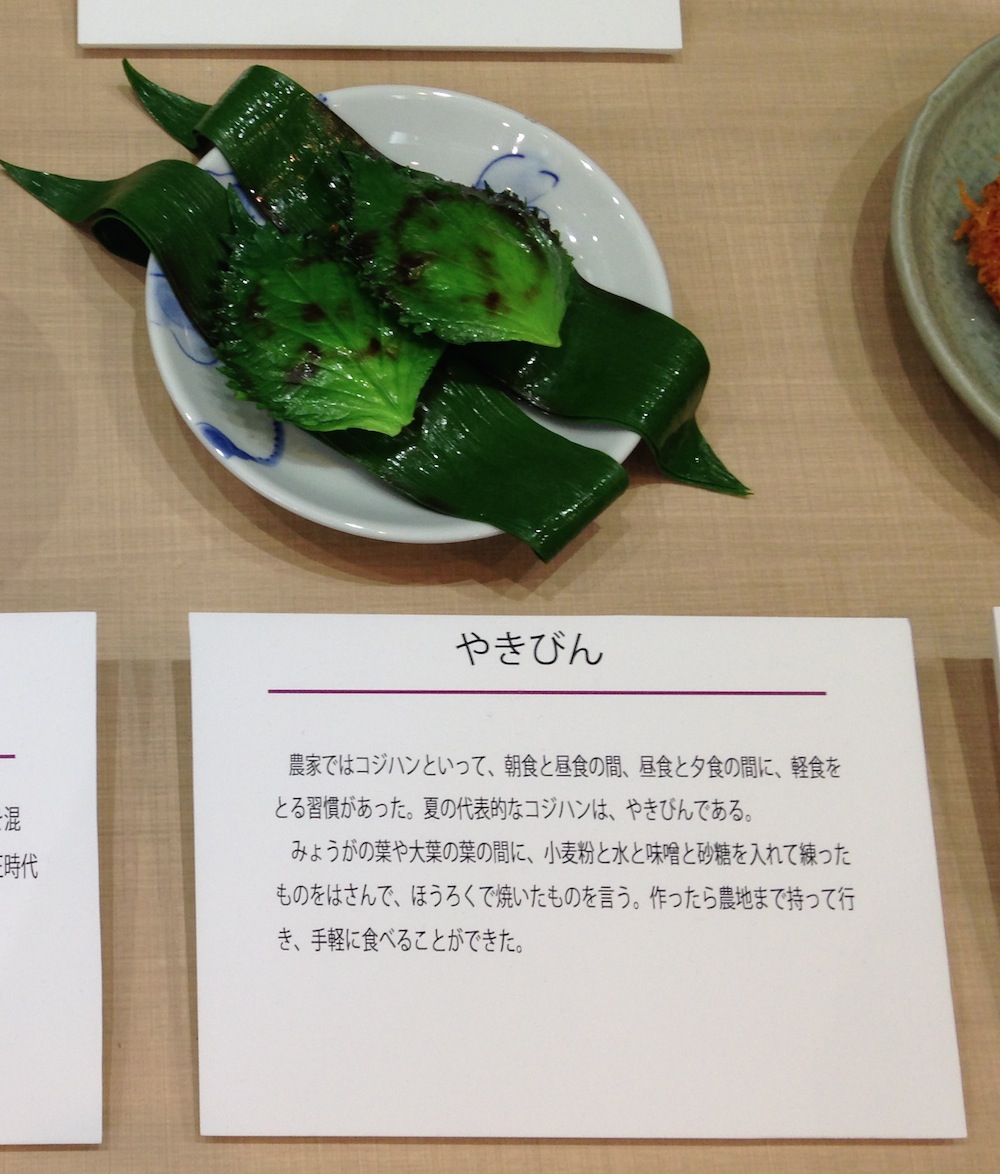 やきびん
農家ではコジハンといって、朝食と昼食の間、昼食と夕食の間に、軽食を
とる習慣があった。夏の代表的なコジハンは、やきびんである。
みょうがの葉や大葉の葉の間に、小麦粉と水と味噌と砂糖を入れて練った
ものをはさんで、ほうろくで焼いたものを言う。作ったら農地まで持って行
き、手軽に食べることができた。
混
時代